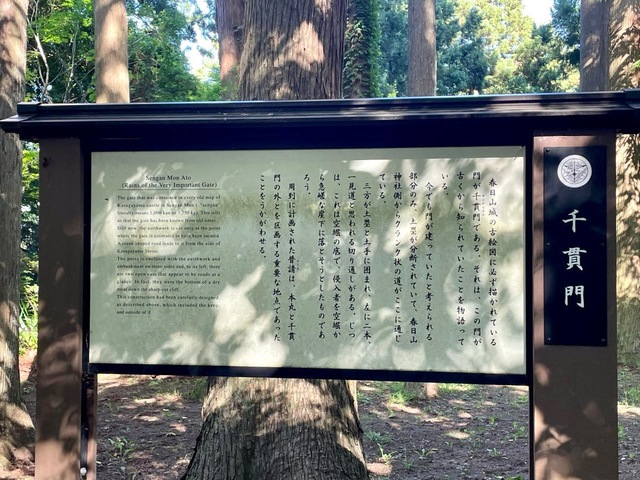 千貫門
春日山城の古絵図に必ず描かれている
門が千貫門である。それは、この門が
古くから知られていたことを物語って
いる。
今でも門が建っていたと考えられる
部分のみ、土塁が分断されていて、春日山
神社側からクランク状の道がここに通じ
ている。
三方が土塁と土手に囲まれ、左に二本、
一見道と思われる切り通しがある。じつ
は、これは空堀の底で、侵入者を空堀か
ら急峻な崖下に落とそうとしたものであ
ろう。
周到に計画された普請は、本丸と千貫
門の外とを区画する重要な地点であった
ことをうかがわせる。
Sengan Mon Ato
(Ruins of the Very Important Gate)
The gate that was contained in every old map of
Kasugayama castle is Sengan Mon ( "sengan"
literally means 1,000 kan or 3,750 kg). This tells
us that the gate has been known from old times.
Still now, the earthwork is cut only at the point
where the gate is estimated to have been located.
A crank shaped road leads to it from the side of
Kasugayama Shrine.
The point is enclosed with the earthwork and
embankment on three sides and, to its left, there
are two open cuts that appear to be roads at a
glance. In fact, they were the bottom of a dry
moat down the sharp-cut cliff.
This construction had been carefully designed
as described above, which included the keep
and outside of it.